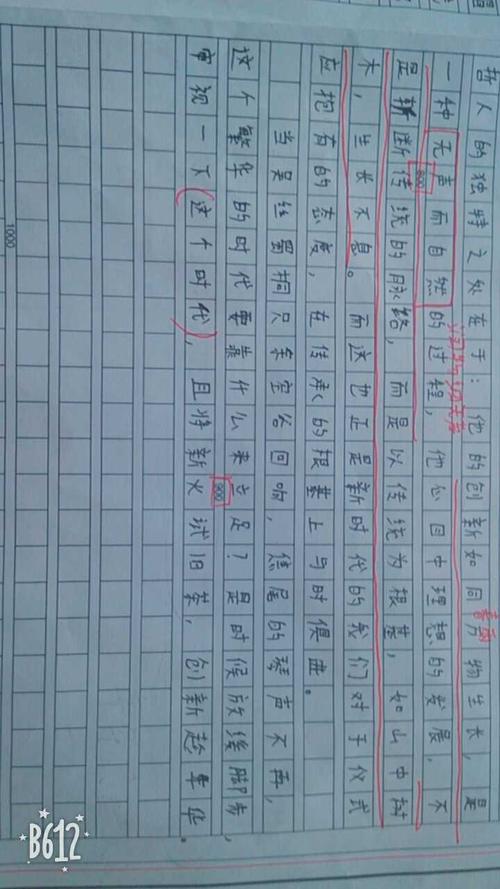 哲人的独特之处在于:他的创新如同万物生长,是
一种无声而自然的过程,他心目中理想的发展,不
800
是斩断传统的脉络,而是以传统为根基,如山中树
木,生长不息。而这也正是新时代的我们对于仪式
应抱有的态度,在传承的根基上与时俱进。
当吴丝蜀桐只余空谷回响,焦尾的琴声不再,
这个繁华的时代要靠什么来立足?是时候放缓脚步,
900
审视一下(这个时代),且将新火试旧茶,创新趁年华。
1000
B612